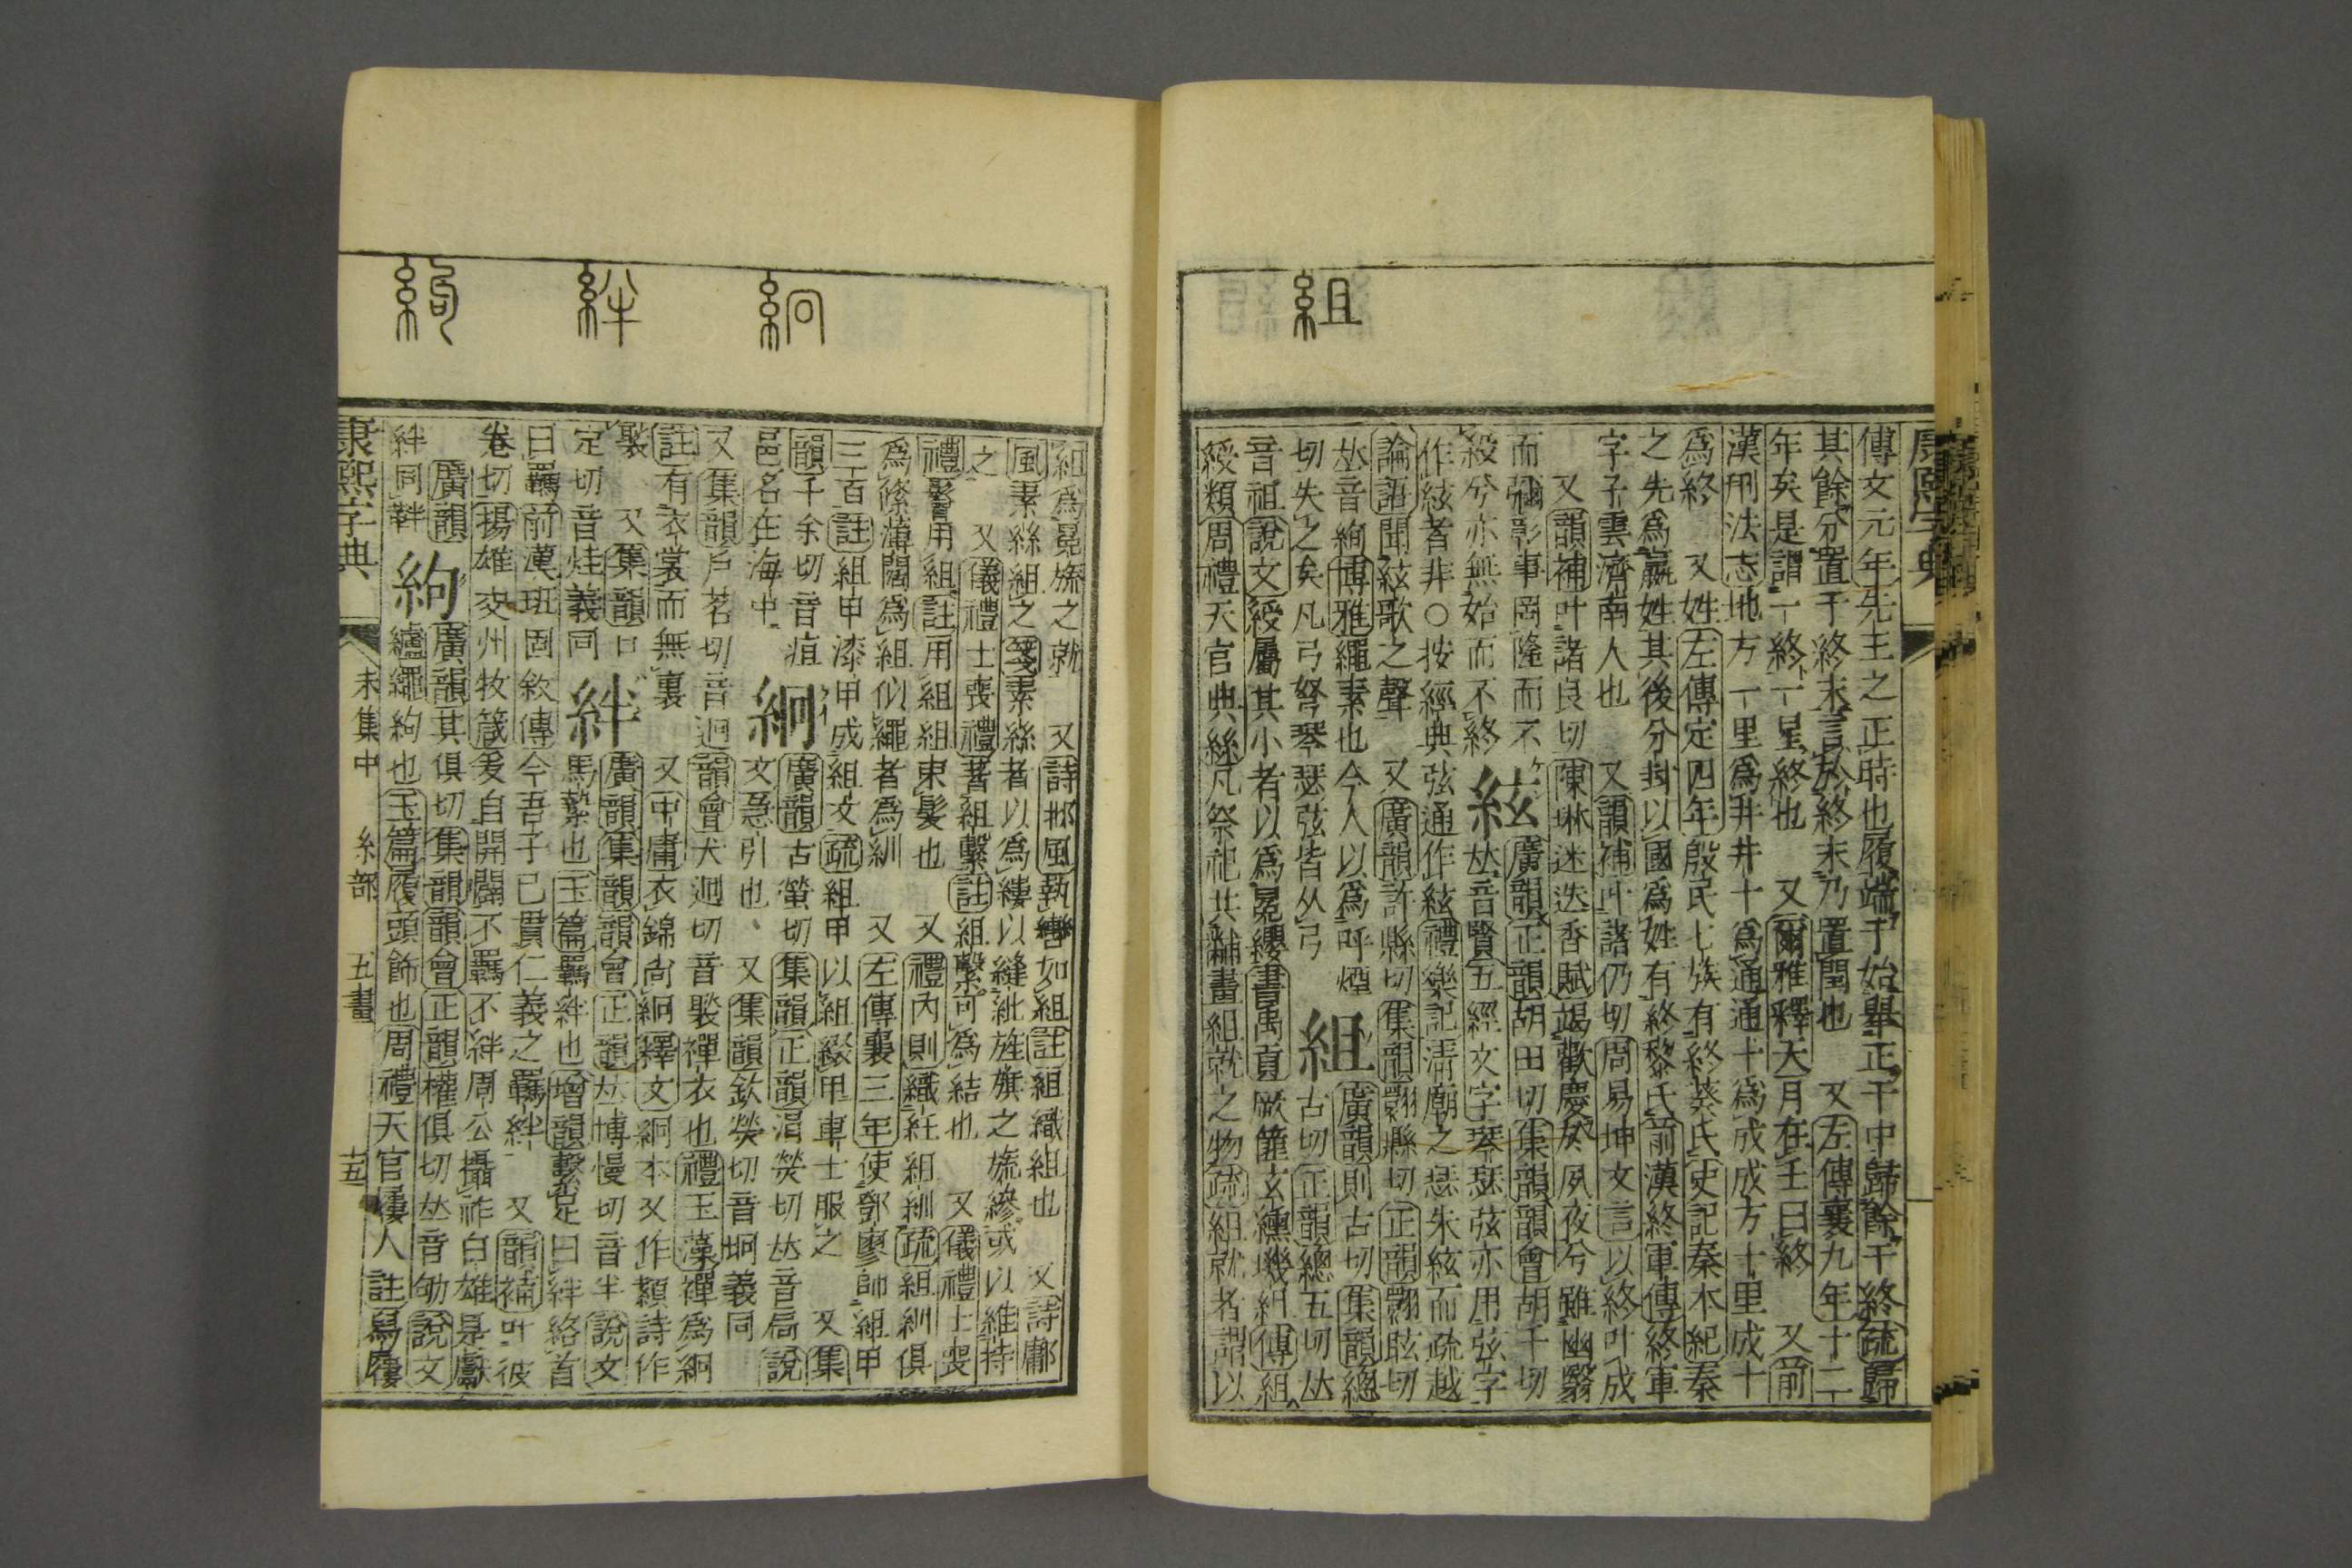 組
康熙字典
傳文元年先王之正時也履端于始舉正于中歸餘于終疏歸
其餘分置于終末言於終末乃置閏也 又左傳襄九年十二
年矣是謂一終一星終也 又爾雅釋天月在壬曰終 又前
漢𠛬法志地方一里爲井井十爲通通十爲成成方十里成十
爲終 又姓左傳定四年殷民七族有終葵氏史記秦本紀秦
之先爲嬴姓其後分封以國爲姓有終黎氏前漢終軍傳終軍
字子雲濟南人也 又韻補叶諸仍切周易坤文言以終叶成
又韻補叶諸良切陳琳迷迭香賦竭歡慶於夙夜兮雖幽翳
而彌彰事罔隆而不
殺兮亦無始而不終
絃
廣韻正韻胡田切集韻韻會胡千切
𠀤音賢五經文字琴瑟弦亦用弦字
作絃者非○按經典弦通作絃禮樂記淸廟之瑟朱絃而疏越
論語聞絃歌之聲 又廣韻許縣切集韻翾縣切正韻翾眩切
𠀤音絢博雅繩索也今人以爲呼煙
切失之矣凡弓弩琴瑟弦皆从弓
組
廣韻則古切集韻總
古切正韻總五切𠀤
音祖說文綬屬其小者以爲冕纓書禹貢厥篚玄纁璣組傳組
綬類周禮天官典絲凡祭祀共黼畫組就之物疏組就者謂以
絅
絆
絇
組爲冕旒之就 又詩邶風執轡如組註組織組也 又詩鄘
風素絲組之箋素絲者以爲縷以縫紕旌旗之旒縿或以維持
之 又儀禮士喪禮著組繫註組繫可爲結也 又儀禮士喪
禮鬠用組註用組組束髮也 又禮內則織紝組紃疏組紃俱
爲絛薄闊爲組似繩者爲紃 又左傳襄三年使鄧廖帥組甲
三百註組甲漆甲成組文疏組甲以組綴甲車士服之 又集
韻千余切音疽
邑名在海中
絅
廣韻古螢切集韻正韻涓熒切𠀤音扃說
文急引也 又集韻欽熒切音坰義同
又集韻戶茗切音迥韻會犬迥切音褧襌衣也禮玉藻襌爲絅
註有衣裳而無裏 又中庸衣錦尙絅釋文絅本又作顈詩作
褧 又集韻口
定切音烓義同
絆
廣韻集韻韻會正韻𠀤博慢切音半說文
馬縶也玉篇羈絆也增韻繫足曰絆絡首
曰羈前漢班固敘傳今吾子已貫仁義之羈絆 又韻補叶彼
卷切揚雄交州牧箴爰自開闢不羈不絆周公攝祚白雄是獻
廣韻
絆同靽
絇
廣韻其俱切集韻韻會正韻權俱切𠀤音劬說文
纑繩絇也玉篇履頭飾也周禮天官屨人註舄屨
康熙字典 未集中 糸部 五畫 十五